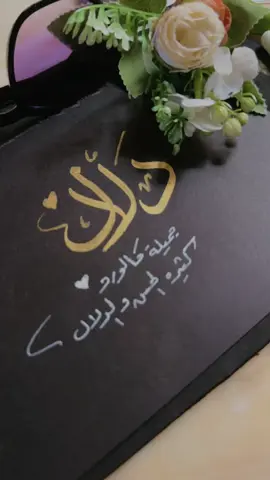 دلال
جميلة كالورد
كثيره الحسن والدلال